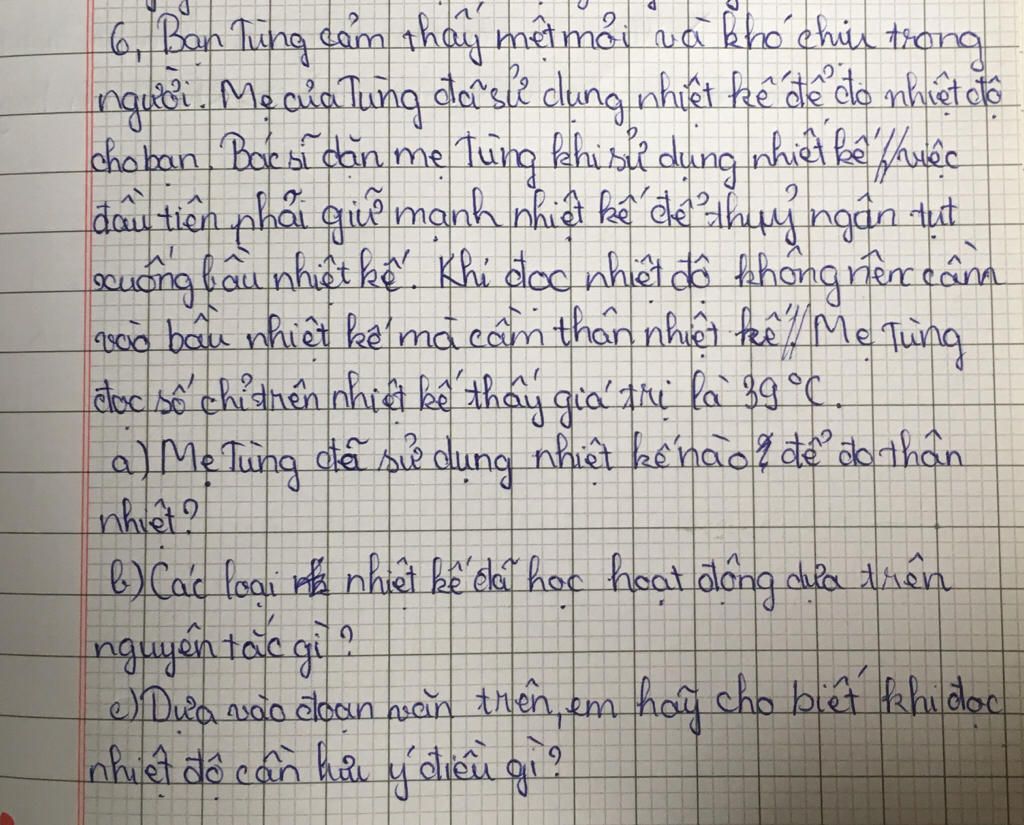 6, Bạn Tùng cảm thấy mệt mỏi và khó chịu trong
người. Mẹ của Tùng đã sử dụng nhiệt kế để đo nhiệt độ
cho bạn. Bác sĩ dặn mẹ Tùng khi sử dụng nhiệt kế "việc
đầu tiên phải giữ mạnh nhiệt kế để thuỷ ngân tụt
xuống bầu nhiệt kế. Khi đọc nhiệt độ không nên cầm
vào bầu nhiệt kế mà cầm thân nhiệt kế" Mẹ Tùng
đọc số chỉ trên nhiệt kế thấy giá trị là 39 °C.
a) Mẹ Tùng đã sử dụng nhiệt kế nào để đo thân
nhiệt?
b) Các loại nhiệt kế đã học hoạt động dựa trên
nguyên tắc gì?
c) Dựa vào đoạn văn trên, em hãy cho biết khi đọc
nhiệt độ cần lưu ý điều gì?